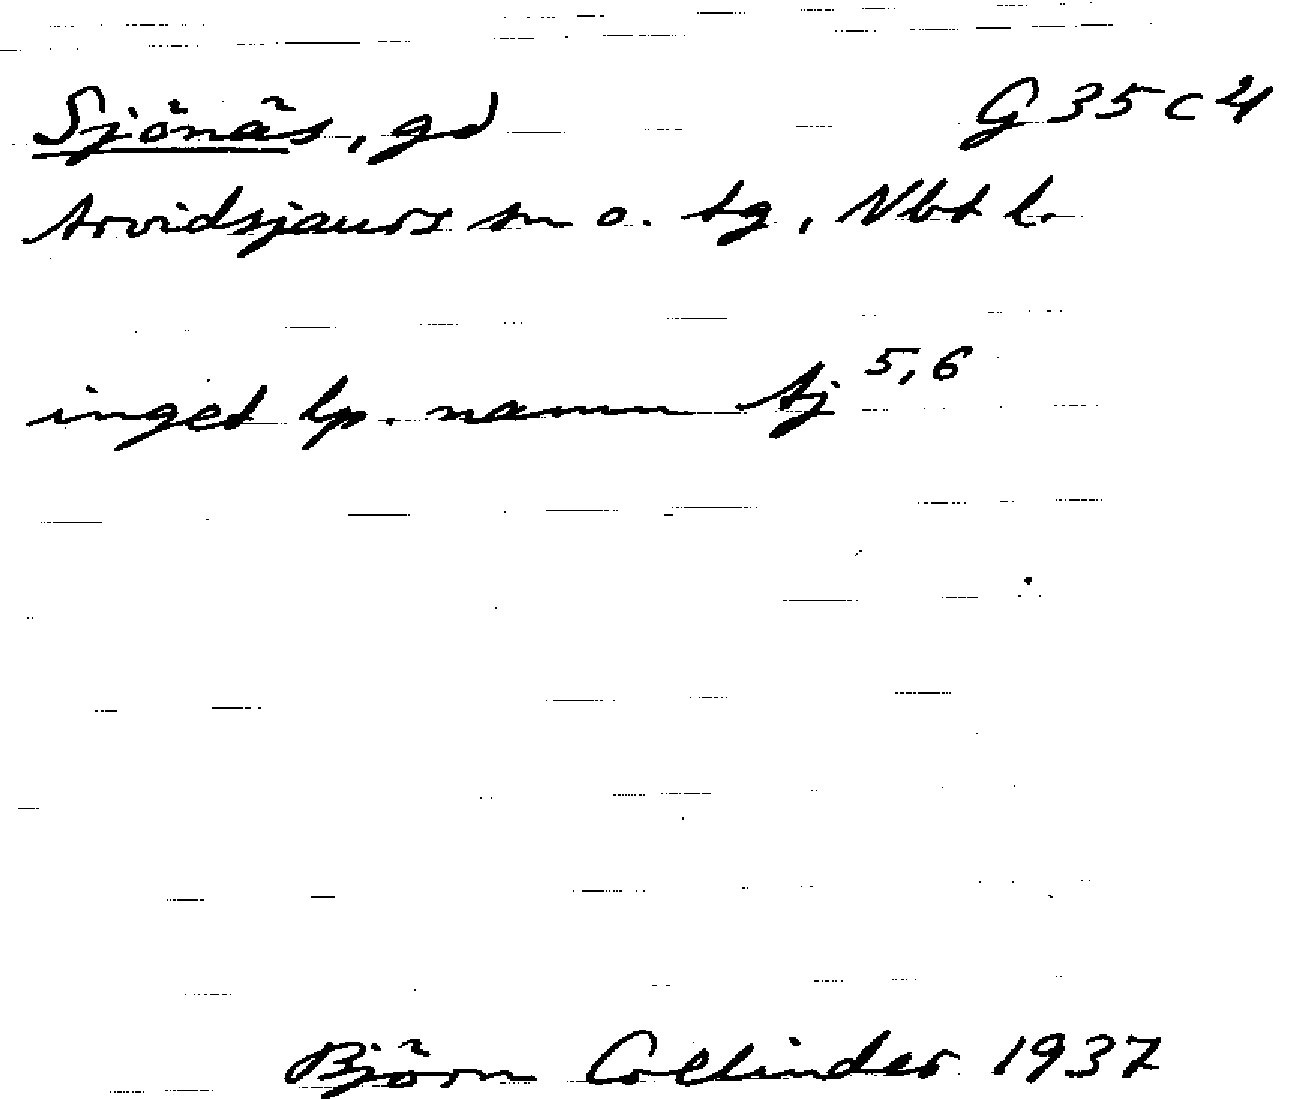 Sjönäs, gd G 35 c 4
Arvidsjaurs sn o. tg, Nbt l.
inget lp. namn Aj 5,6
Björn Collinder 1937